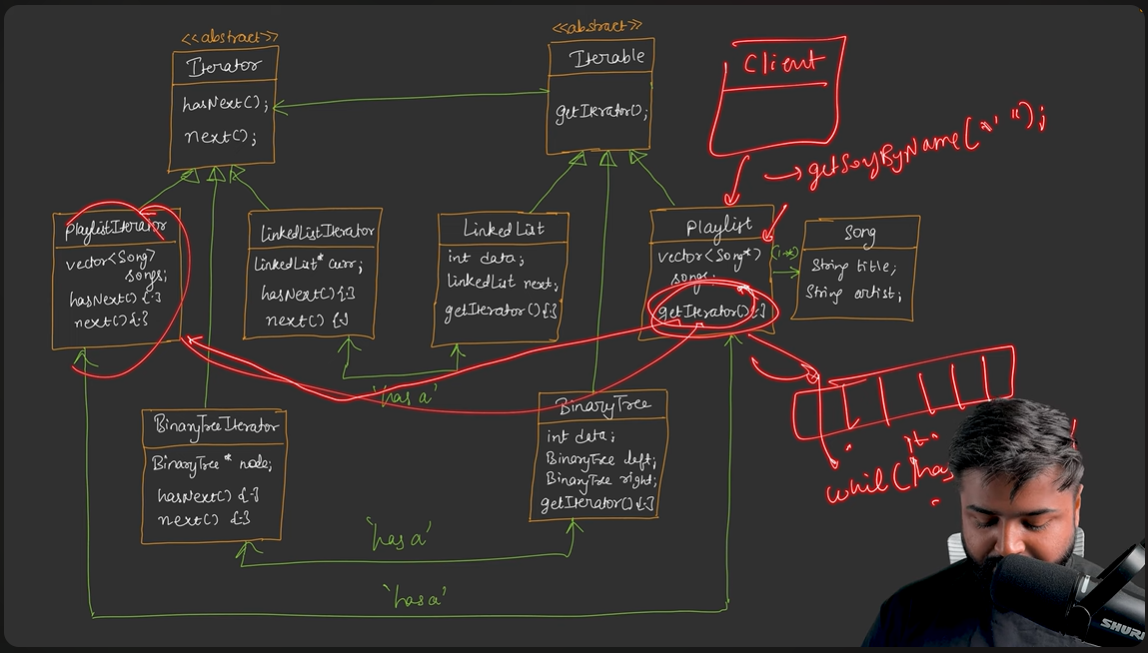 <<abstract>>
Iterator
hasNext();
next();
<<abstract>>
Iterable
getIterator();
Client
getSongByName(" ");
PlaylistIterator
vector<Song>
songs;
hasNext(){·}
next(){·}
LinkedListIterator
LinkedList* curr;
hasNext(){·}
next(){·}
LinkedList
int data;
LinkedList next;
getIterator(){·}
Playlist
vector<Song*>
songs;
getIterator(){·}
(1-*)
Song
String title;
String artist;
'has a'
BinaryTreeIterator
BinaryTree* node;
hasNext(){·}
next(){·}
BinaryTree
int data;
BinaryTree left;
BinaryTree right;
getIterator(){·}
it
whil(has
'has a'
'has a'
SHUR